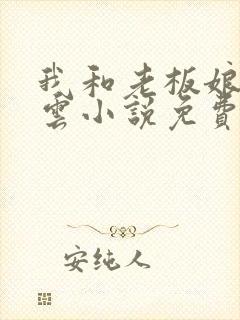 我和老板娘
雲小說免費
安纯人